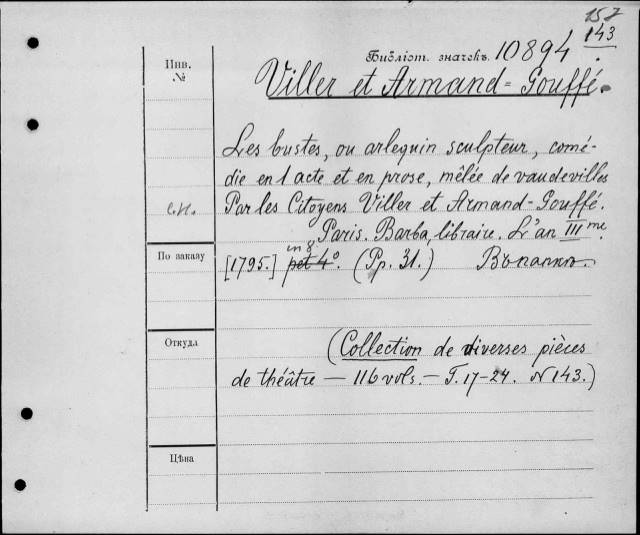 157
143
Библіот. значекъ 10894
Инв.
№
Viller et Armand-Gouffé.
Les bustes, ou arlequin sculpteur, comé-
die en 1 acte et en prose, mêlée de vaudevilles
Par les Citoyens Viller et Armand-Gouffé.
Paris. Barba, libraire. L'an IIIme.
in 8
По заказу
[1795.] pet 4º. (Pp. 31.) Въ папкѣ.
Откуда
(Collection de diverses pièces
de théâtre — 116 vols. — T. 17-24. N 143.)
Цѣна